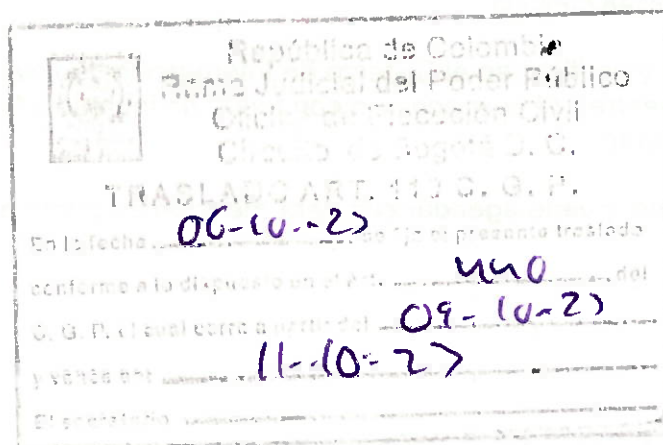 República de Colombia
Rama Judicial del Poder Público
Oficina de Ejecución Civil
Circuito de Bogotá D. C.
TRASLADO ART. 110 C. G. P.
En la fecha 06-10-23 se fija el presente traslado
conforme a lo dispuesto en el Art. 440 del
C. G. P. el cual corre a partir del 09-10-23
y vence en: 11-10-23
El secretario